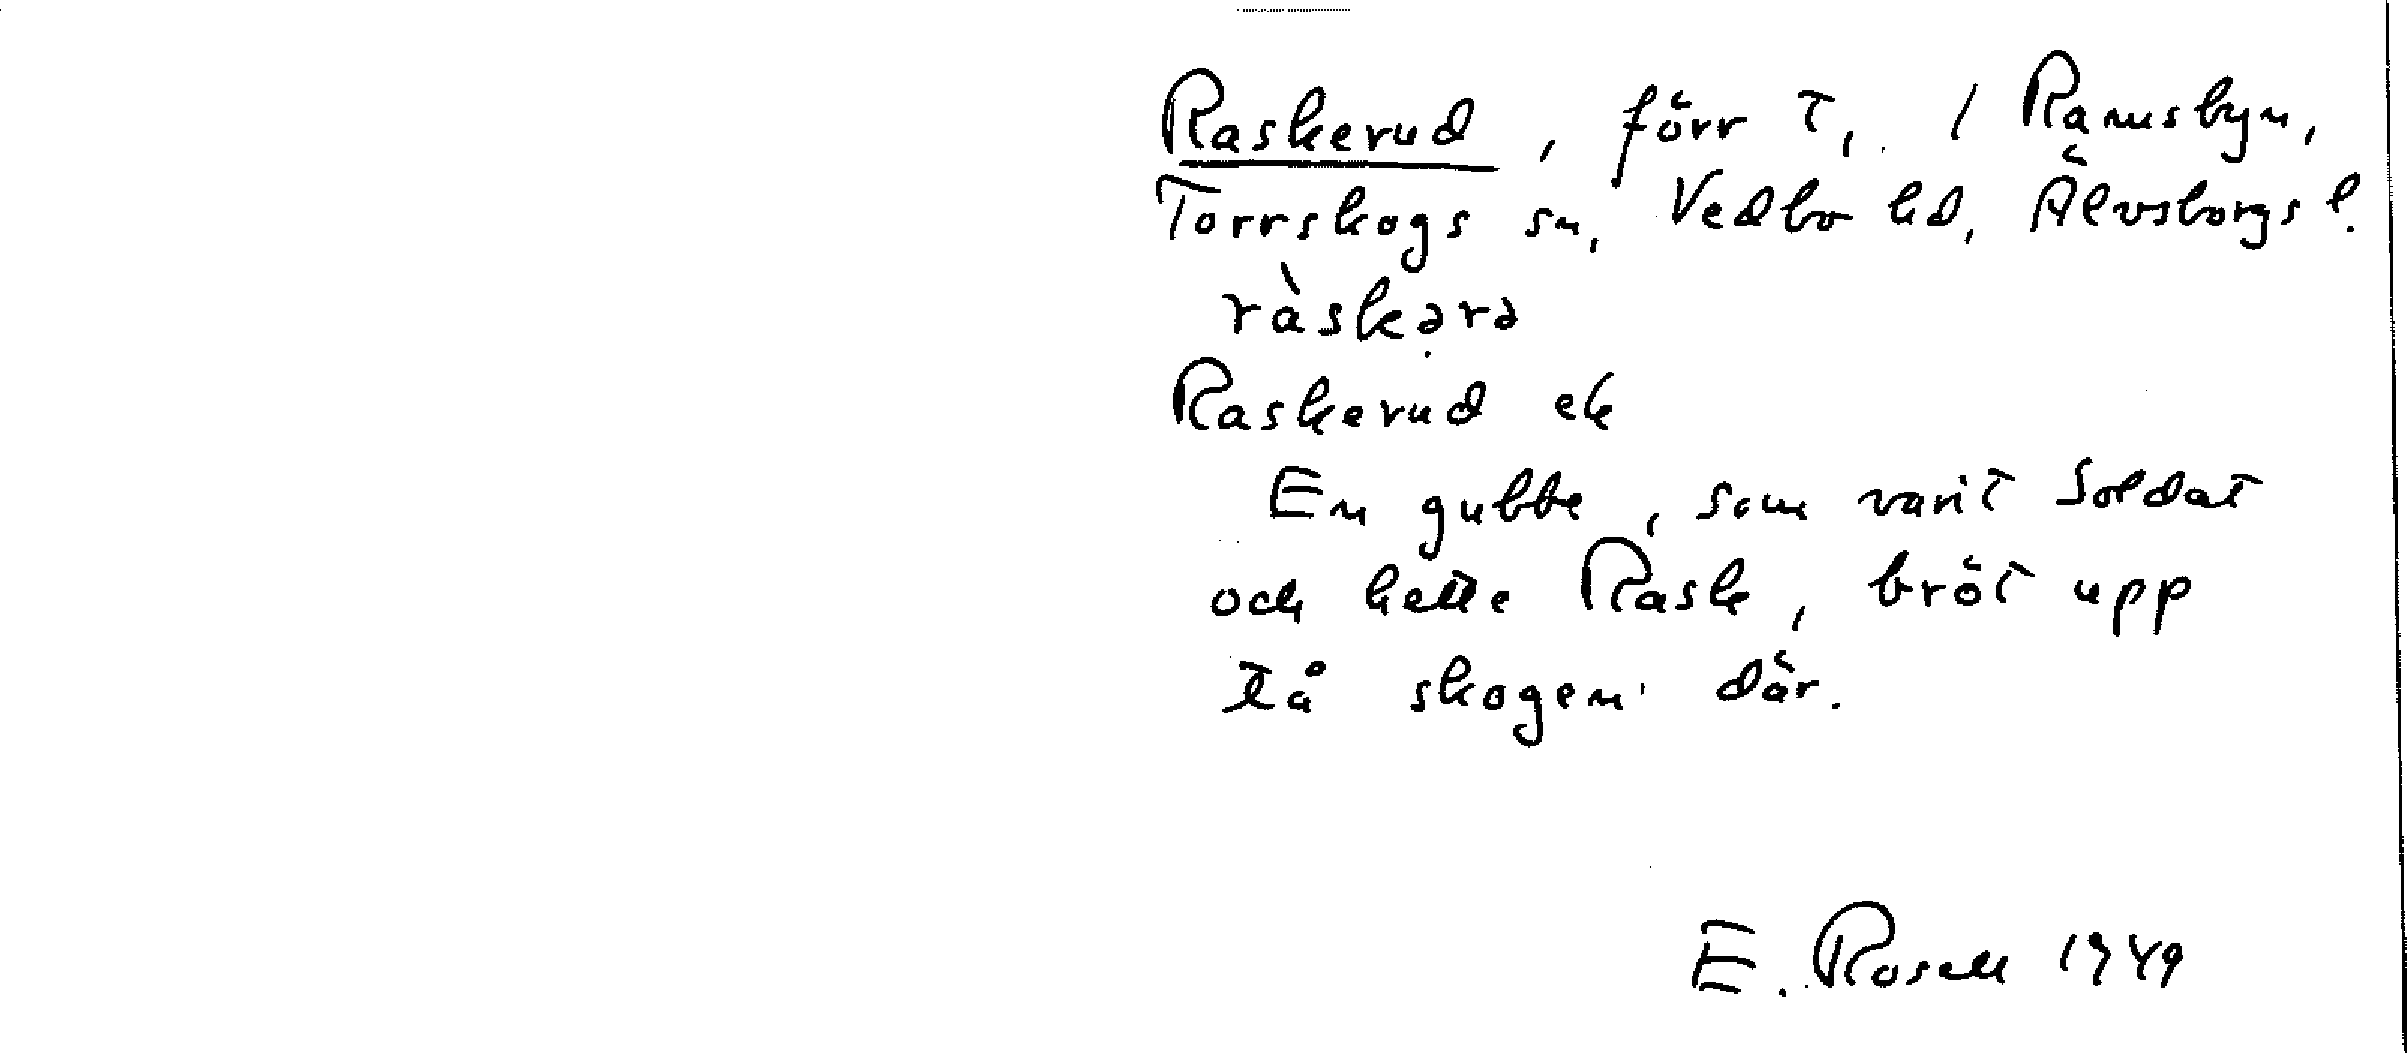 Raskerud, förr t, / Ramsbyn,
Torrskogs sn, Vedbo hd, Älvsborgs l.
ràskərə
Raskerud ek
En gubbe, som varit soldat
och hette Rask, bröt upp
två skogen där.
E. Rosell 1949